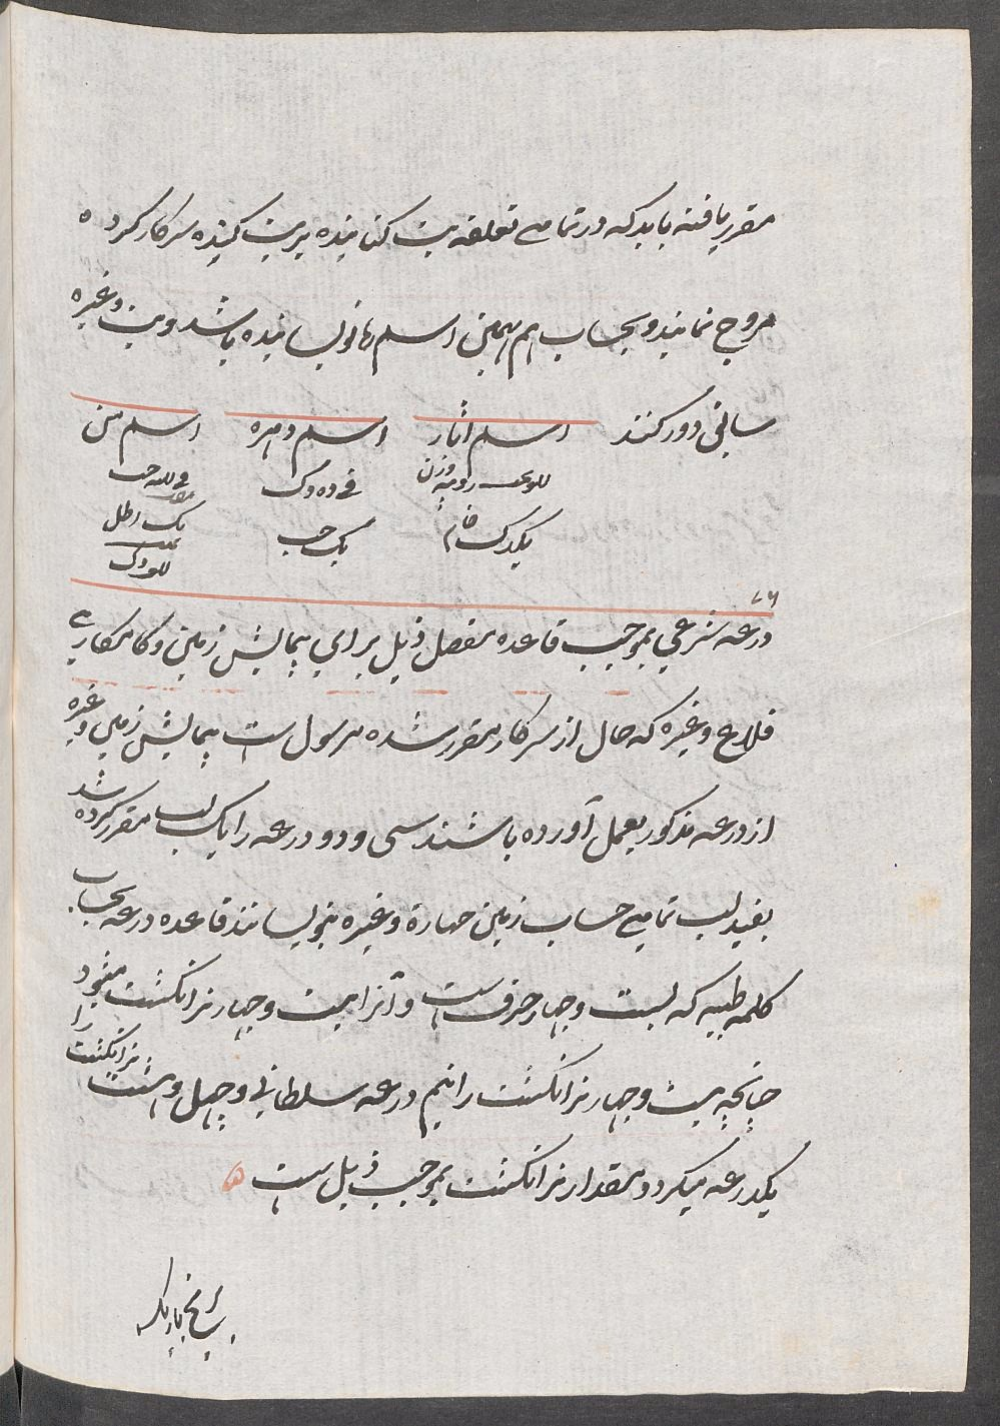 مقرر یافته باید که در تمامے تعلقه بیت کنانیده بربیت کنیده سرکار کرده
مروج نمانید و بحساب هم همین اسم ها نویسانیده باشد و بیت وغیره
سابق دور کنند اسم اثار اسم دهره اسم من
وزن
یکدک خام یک حب یک رطل
۷۶
درعه شرعی بموجب قاعده مفصل ذیل برای پیمایش زمین و کامکاری
قلاع وغیره که حال از سرکار مقرر شده مرسول است پیمایش زمین وغیره
از درعه مذکور بعمل آورده باشند سی و دو درعه را یک لب مقرر کرده شد
بقید لب تمامی حساب زمین وغیره بنویسانند قاعده درعه بحساب
کلمه طیبه که بست و چهار حرف است و آنرا بیست و چهار نرانگشت میشود
چنانچه بیست و چهار نرانگشت را نیم درعه سلطانی و چهل و هشت نرانگشت را
یکدرعه میگردد و مقدار نرانگشت بموجب ذیل است
برنج باریک